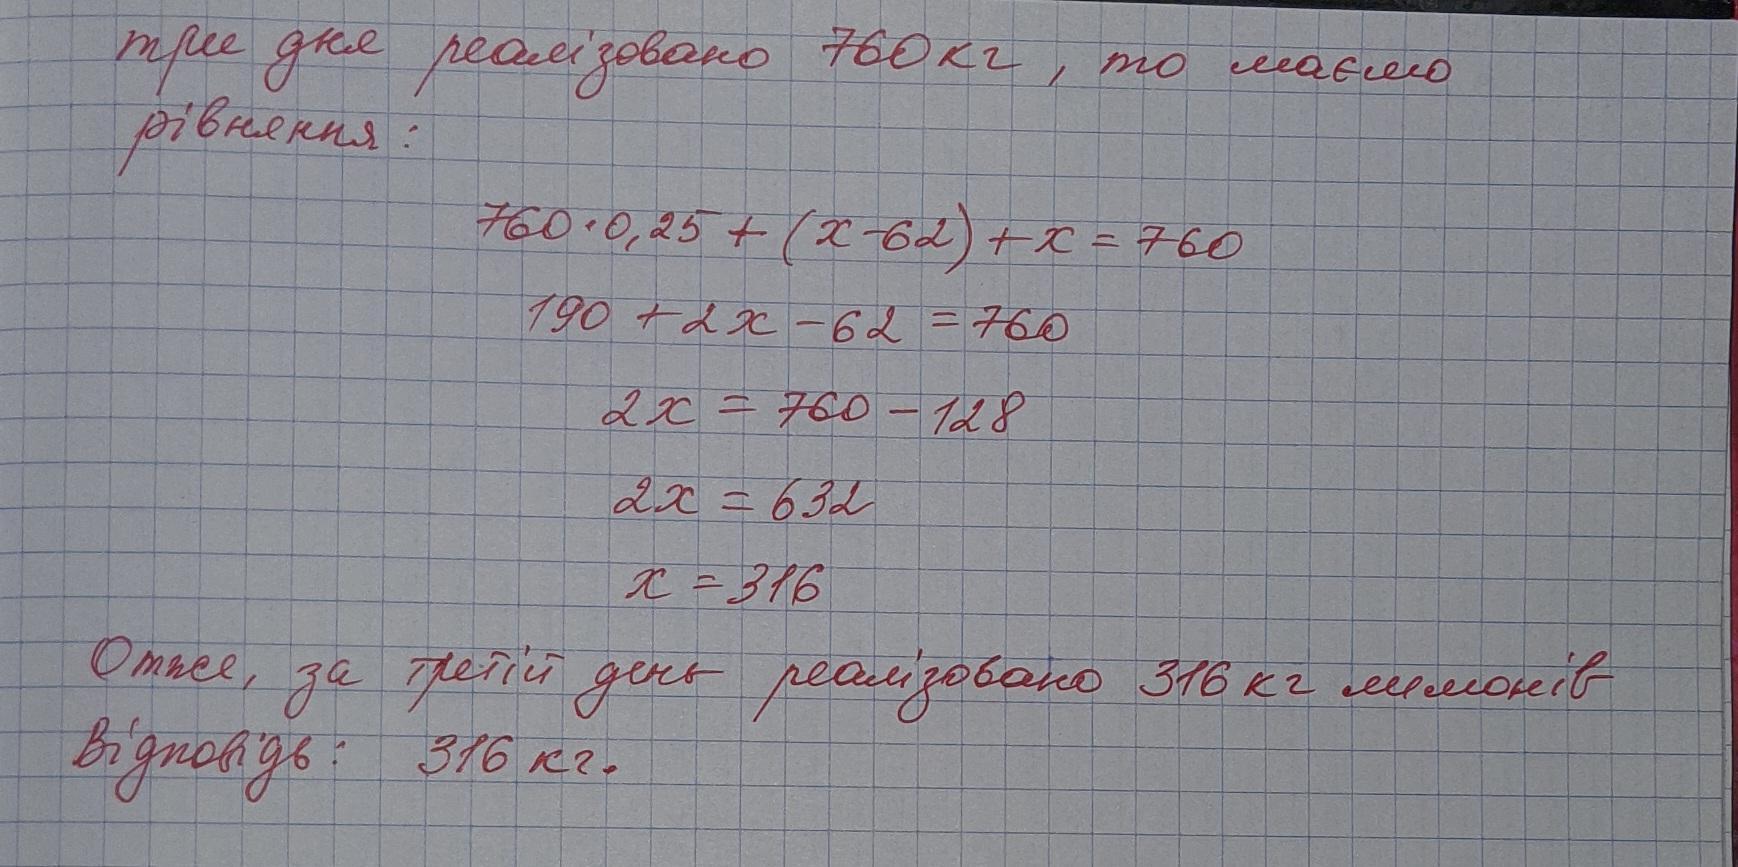 три дня реалізовано 760 кг, то маємо
рівняння:
760·0,25 + (x-62) + x = 760
190 + 2x - 62 = 760
2x = 760 - 128
2x = 632
x = 316
Отже, за третій день реалізовано 316 кг лимонів
Відповідь: 316 кг.